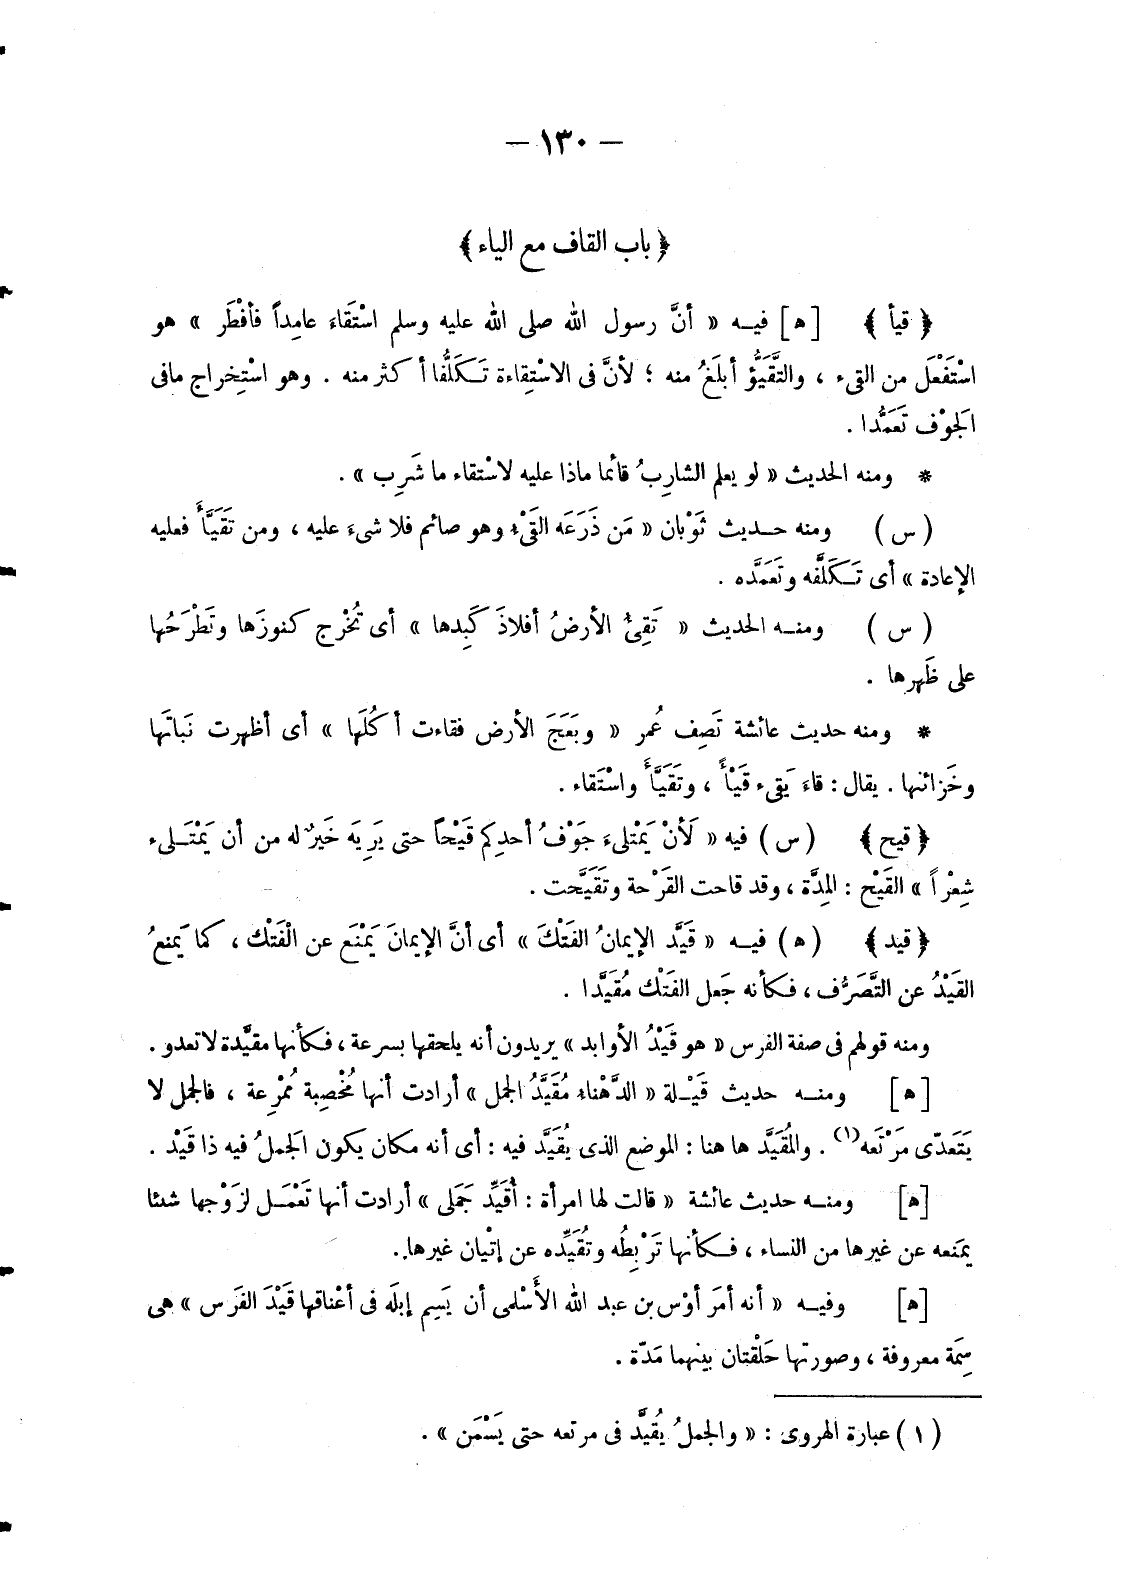 — ١٣٠ —
﴿ باب القاف مع الياء ﴾
﴿ قيأ ﴾ [ ه ] فيه « أنَّ رسول الله صلى الله عليه وسلم اسْتَقَاءَ عامِداً فأفْطَر » هو
اسْتَفْعَل من القىء ، والتَّقَيُّؤ أبلَغُ منه ؛ لأنَّ فى الاسْتِقاءة تَكلُّفا أكثر منه . وهو استْخِراج مافى
الجَوْف تَعَمُّدا .
* ومنه الحديث « لو يعلم الشارِبُ قائما ماذا عليه لاسْتقاء ما شَرِب » .
( س ) ومنه حديث ثَوْبان « مَن ذَرَعَه القَىْء وهو صائم فلا شىءَ عليه ، ومن تَقَيَّأَ فعليه
الإعادة » أى تَكَلَّفه وتَعَمَّده .
( س ) ومنه الحديث « تَقِىُّ الأرضُ أفلاذَ كَبِدها » أى تُخْرج كنوزَها وتَطْرَحُها
على ظَهرها .
* ومنه حديث عائشة تَصِف عُمر « وبَعَجَ الأرض فقاءت أكُلَها » أى أظهرت نَباتَها
وخَزائنها . يقال : قاءَ يَقىء قَيْأً ، وتَقَيَّأَ واسْتَقاء .
﴿ قيح ﴾ ( س ) فيه « لَأنْ يَمْتلىءَ جَوْفُ أحدِكم قَيْحاً حتى يَرِيَه خَيرٌ له من أن يَمْتَلىء
شِعْراً » القَيْح : المِدَّة ، وقد قاحت القَرْحة وتَقَيَّحت .
﴿ قيد ﴾ ( ه ) فيه « قَيَّد الإيمانُ الفَتْكَ » أى أنَّ الإيمانَ يَمْنَع عن الْفَتْك ، كما يَمنعُ
القَيْدُ عن التَّصَرُّف ، فكأنه جَعل الفَتْك مُقَيَّدا .
ومنه قولهم فى صفة الفرس « هو قَيْدُ الأوابد » يريدون أنه يلحقها بسرعة ، فكأنها مقيَّدة لاتعدو .
[ ه ] ومنه حديث قَيْلة « الدَّهْناء مُقَيَّدُ الجمل » أرادت أنها مُخْصِبة مُمْرِعة ، فالجمل لا
يَتَعدّى مَرْتَعه(١) . والمُقَيَّد ها هنا : الموضع الذى يُقَيَّد فيه : أى أنه مكان يكون الجَملُ فيه ذا قَيْد .
[ ه ] ومنه حديث عائشة « قالت لها امرأة : أُقَيِّد جَمَلى » أرادت أنها تَعْمَل لزَوْجها شئا
يمنَعه عن غيرها من النساء ، فكأنها تَرْبِطُه وتُقَيِّده عن إتْيان غيرها .
[ ه ] وفيه « أنه أمَر أوْس بن عبد الله الأَسْلمى أن يَسِم إبلَه فى أعْناقها قَيْدَ الفَرَس » هى
سِمَة معروفة ، وصورتها حَلْقتان بينهما مَدّة .
( ١ ) عبارة الهروى : « والجملُ يُقيَّد فى مرتعه حتى يَسْمَن » .